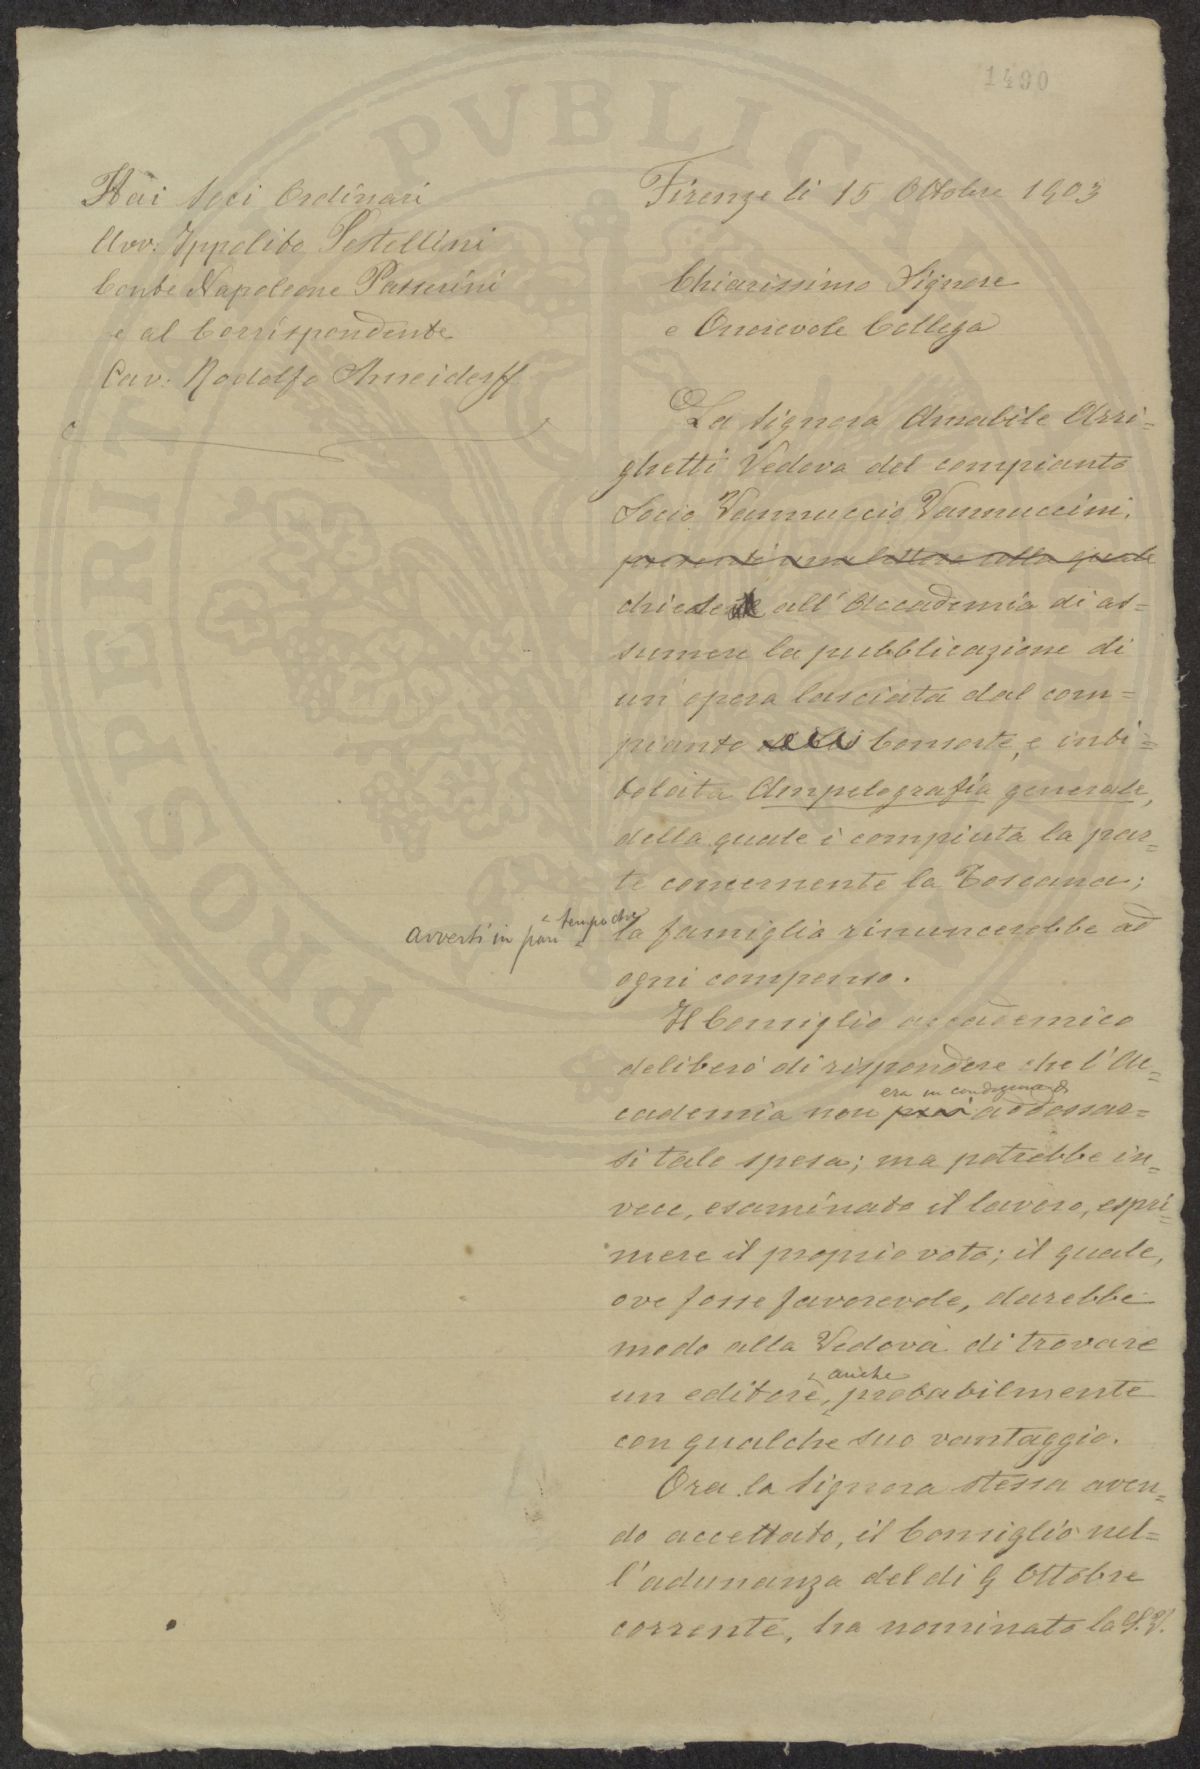 1490
Ai Soci Ordinari
Avv: Ippolito Pestellini
Conte Napoleone Passerini
e al Corrispondente
Cav: Rodolfo
Firenze li 15 Ottobre 1903
Chiarissimo Signore
e Onorevole Collega
La Signora Amabile Arri=
ghetti Vedova del compianto
Socio Vannuccio Vannuccini,
presentò una lettera colla quale
chiede all'Accademia di as=
sumere la pubblicazione di
un'opera lasciata dal com=
pianto Consorte, e inti=
tolata Ampelografia generale,
della quale è compiuta la par=
te concernente la Toscana;
avvertì in pari tempo che
la famiglia rinuncerebbe ad
ogni compenso.
Il Consiglio accademico
deliberò di rispondere che l'Ac=
era in condizione di
cademia non addossar=
si tale spesa; ma potrebbe in=
vece, esaminato il lavoro, espri=
mere il proprio voto; il quale,
ove fosse favorevole, darebbe
modo alla Vedova di trovare
anche
un editore, probabilmente
con qualche suo vantaggio.
Ora la Signora stessa aven=
do accettato, il Consiglio nel=
l'adunanza del dì 9 Ottobre
corrente, ha nominato la S.V.
PROSPERITATI PVBLICAE